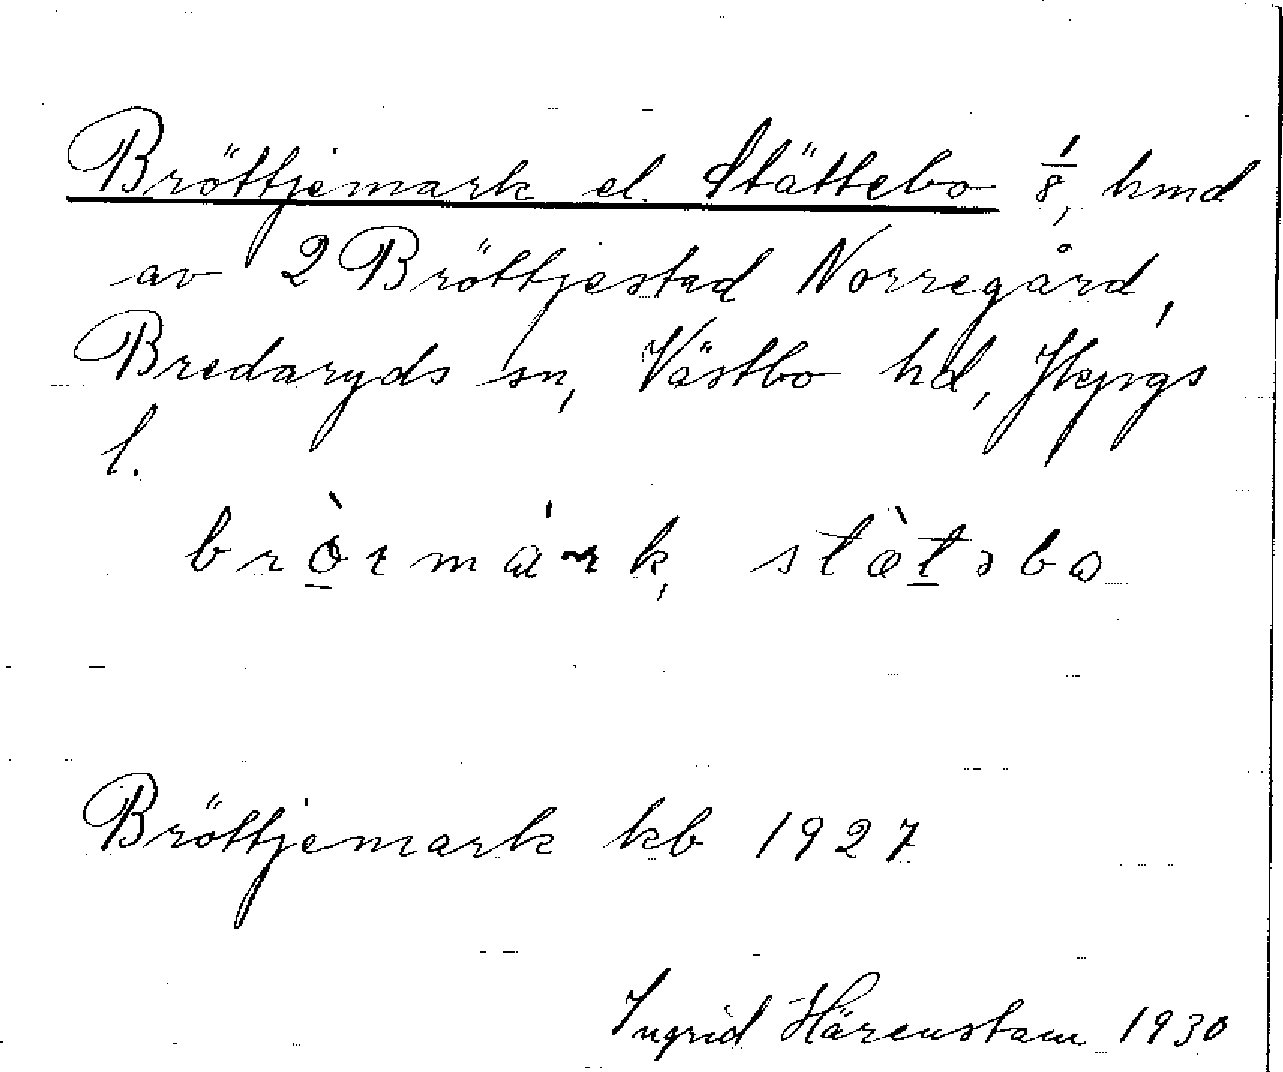 Bröttjemark el. Stättebo 1/8, hmd
av 2 Bröttjestad Norregård,
Bredaryds sn, Västbo hd, Jkpgs
l.
brò̠rmárk, stæ̀t̠əbo
Bröttjemark kb 1927
Ingrid Härenstam 1930